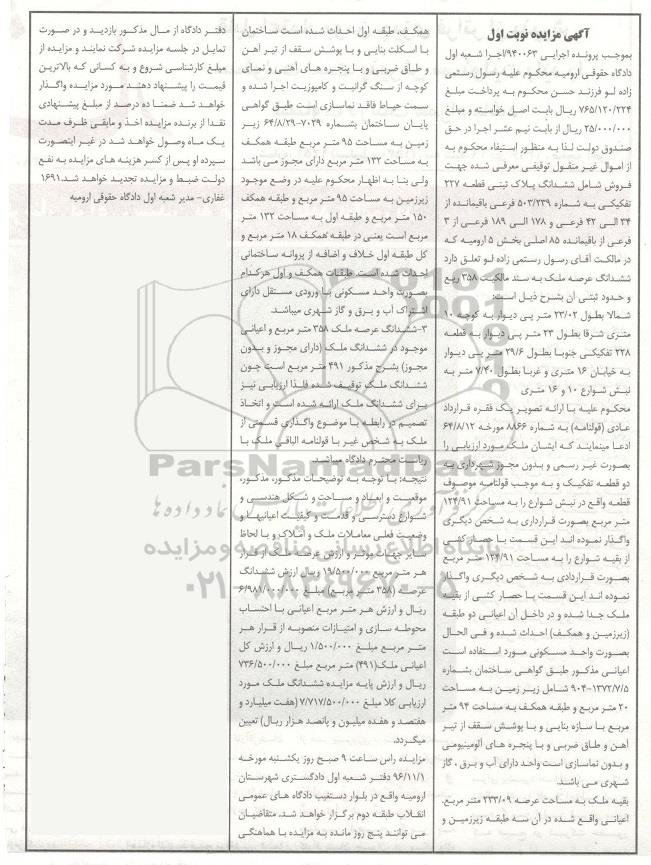 آگهی مزایده نوبت اول
بموجب پرونده اجرایی ۹۴۰۰۶۳/اجرا شعبه اول
دادگاه حقوقی ارومیه محکوم علیه رسول رستمی
زاده لو فرزند حسن محکوم به پرداخت مبلغ
۷۶۵/۱۲۰/۲۲۴ ریال بابت اصل خواسته و مبلغ
۲۵/۰۰۰/۰۰۰ ریال از بابت نیم عشر اجرا در حق
صندوق دولت لذا به منظور استیفاء محکوم به
از اموال غیر منقول توقیفی معرفی شده جهت
فروش شامل ششدانگ پلاک ثبتی قطعه ۲۲۷
تفکیکی به شماره ۵۰۳/۲۳۹ فرعی باقیمانده از
۳۴ الی ۴۲ فرعی و ۱۷۸ الی ۱۸۹ فرعی از ۳
فرعی از باقیمانده ۸۵ اصلی بخش ۵ ارومیه که
در مالکت آقای رسول رستمی زاده لو تعلق دارد
ششدانگ عرصه ملک به سند مالکیت ۳۵۸ ربع
و حدود ثبتی آن بشرح ذیل است:
شمالا بطول ۲۳/۰۲ متر پی دیوار به کوچه ۱۰
متری شرقا بطول ۲۳ متر پی دیوار به قطعه
۲۲۸ تفکیکی جنوبا بطول ۲۹/۶ متر پی دیوار
به خیابان ۱۶ متری و غربا بطول ۷/۴۰ متر به
نبش شوارع ۱۰ و ۱۶ متری
محکوم علیه با ارائه تصویر یک فقره قرارداد
عادی (قولنامه) به شماره ۸۸۶۶ مورخه ۶۴/۸/۱۲
ادعا مینمایند که ایشان ملک مورد ارزیابی را
بصورت غیر رسمی و بدون مجوز شهرداری به
دو قطعه تفکیک و به موجب قولنامه موصوف
قطعه واقع در نبش شوارع را به مساحت ۱۲۴/۹۱
متر مربع بصورت قراردادی به شخص دیگری
واگذار نموده اند این قسمت با حصار کشی
از بقیه شوارع را به مساحت ۱۲۴/۹۱ متر مربع
بصورت قراردادی به شخص دیگری واگذار
نموده اند این قسمت با حصار کشی از بقیه
ملک جدا شده و در داخل آن اعیانی دو طبقه
(زیرزمین و همکف) احداث شده و فی الحال
بصورت واحد مسکونی مورد استفاده است
اعیانی مذکور طبق گواهی ساختمان بشماره
۹۰۴-۱۳۷۲/۷/۵ شامل زیر زمین به مساحت
۲۰ متر مربع و طبقه همکف به مساحت ۹۴ متر
مربع با سازه بنایی و با پوشش سقف از تیر
آهن و طاق ضربی و با پنجره های آلومینیومی
و بدون نماسازی است واحد دارای آب و برق ، گاز
شهری می باشد.
بقیه ملک به مساحت عرصه ۲۳۳/۰۹ متر مربع
اعیانی واقع شده در آن سه طبقه زیرزمین و
همکف، طبقه اول احداث شده است ساختمان
با اسکلت بنایی و با پوشش سقف از تیر آهن
و طاق ضربی و با پنجره های آهنی و نمای
کوچه از سنگ گرانیت و کامپوزیت اجرا شده و
سمت حیاط فاقد نماسازی است طبق گواهی
پایان ساختمان بشماره ۷۰۲۹-۶۴/۸/۲۹ زیر
زمین به مساحت ۹۵ متر مربع طبقه همکف
به مساحت ۱۳۲ متر مربع دارای مجوز می باشد
ولی بنا به اظهار محکوم علیه در وضع موجود
زیرزمین به مساحت ۹۵ متر مربع و طبقه همکف
۱۵۰ متر مربع و طبقه اول به مساحت ۱۳۲ متر
مربع است یعنی در طبقه همکف ۱۸ متر مربع و
کل طبقه اول خلاف و اضافه از پروانه ساختمانی
احداث شده است. طبقات همکف و اول هرکدام
بصورت واحد مسکونی با ورودی مستقل دارای
اشتراک آب و برق و گاز شهری میباشد.
۳-ششدانگ عرصه ملک ۳۵۸ متر مربع و اعیانی
موجود در ششدانگ ملک (دارای مجوز و بدون
مجوز) بشرح مذکور ۴۹۱ متر مربع است چون
ششدانگ ملک توقیف شده فلذا ارزیابی نیز
برای ششدانگ ملک ارائه شده است و اتخاذ
تصمیم در رابطه با موضوع واگذاری قسمتی از
ملک به شخص غیر با قولنامه الباقی ملک با
ریاست محترم دادگاه میباشد.
نتیجه: با توجه به توضیحات مذکور، مذکور،
موقعیت و ابعاد و مساحت و شکل هندسی و
شوارع دسترسی و قدمت و کیفیت اعیانیها و
وضعیت فعلی معاملات ملک و املاک و با لحاظ
سایر جهات موثر و ارزش عرصه ملک از قرار
هر متر مربع ۱۹/۵۰۰/۰۰۰ ریال ارزش ششدانگ
عرصه (۳۵۸ متر مربع) مبلغ ۶/۹۸۱/۰۰۰/۰۰۰
ریال و ارزش هر متر مربع اعیانی با احتساب
محوطه سازی و امتیازات منصوبه از قرار هر
متر مربع مبلغ ۱/۵۰۰/۰۰۰ ریال و ارزش کل
اعیانی ملک(۴۹۱) متر مربع مبلغ ۷۳۶/۵۰۰/۰۰۰
ریال و ارزش پایه مزایده ششدانگ ملک مورد
ارزیابی کلا مبلغ ۷/۷۱۷/۵۰۰/۰۰۰ (هفت میلیارد و
هفتصد و هفده میلیون و پانصد هزار ریال) تعیین
میگردد.
مزایده راس ساعت ۹ صبح روز یکشنبه مورخه
۹۶/۱۱/۱ دفتر شعبه اول دادگستری شهرستان
ارومیه واقع در بلوار دستغیب دادگاه های عمومی
انقلاب طبقه دوم برگزار خواهد شد. متقاضیان
می توانند پنج روز مانده به مزایده با هماهنگی
دفتر دادگاه از مال مذکور بازدید و در صورت
تمایل در جلسه مزایده شرکت نمایند و مزایده از
مبلغ کارشناسی شروع و به کسانی که بالاترین
قیمت را پیشنهاد دهند مورد مزایده واگذار
خواهد شد ضمنا ده درصد از مبلغ پیشنهادی
نقدا از برنده مزایده اخذ و مابقی ظرف مدت
یک ماه وصول خواهد شد در غیر اینصورت
سپرده او پس از کسر هزینه های مزایده به نفع
دولت ضبط و مزایده تجدید خواهد شد.۱۶۹۱
غفاری- مدیر شعبه اول دادگاه حقوقی ارومیه
ParsNamadData
پایگاه اطلاع رسانی مناقصه و مزایده
۰۲۱-۸۸۳۴۹۶۷۰-۵